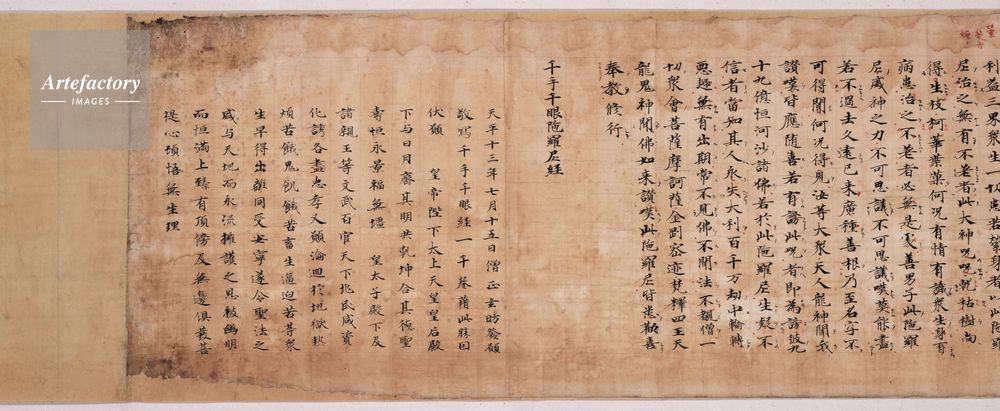 利益三界衆生一切患苦縈身者以此陀羅
尼治之無有不差者此大神呪呪乾枯樹尚
得生枝柯華菓何況有情有識衆生身有
病患治之不差者必無是處善男子此陀羅
尼威神之力不可思議不可思議嘆莫能盡
若不過去久遠已来廣種善根乃至名字不
可得聞何況得見汝等大衆天人龍神聞我
讃嘆皆應随喜若有謗此呪者即為謗彼九
十九億恒河沙諸佛若於此陀羅尼生疑不
信者當知其人永失大利百千万劫中輪轉
惡趣無有出期常不見佛不聞法不覩僧一
切衆會菩薩摩訶薩金剛密迹梵釋四王天
龍鬼神聞佛如来讃嘆此陀羅尼皆悉歡喜
奉教修行
千手千眼陀羅尼経
天平十三年七月十五日僧正玄昉發願
敬寫千手千眼経一千巻藉此勝因
伏願 皇帝陛下太上天皇皇后殿
下与日月齊其明共乾坤合其德聖
壽恒永景福無壃 皇太子殿下及
諸親王等文武百官天下兆民咸資
化誘各盡忠孝又願淪迴於地獄熱
煩苦餓鬼飢餓苦畜生逼迫苦等衆
生早得出離同受安寧遂令聖法之
盛与天地而永流擁護之恩被幽明
而恒滿上臻有頂傍及無邊俱發菩
提心頓悟無生理
Artefactory
IMAGES